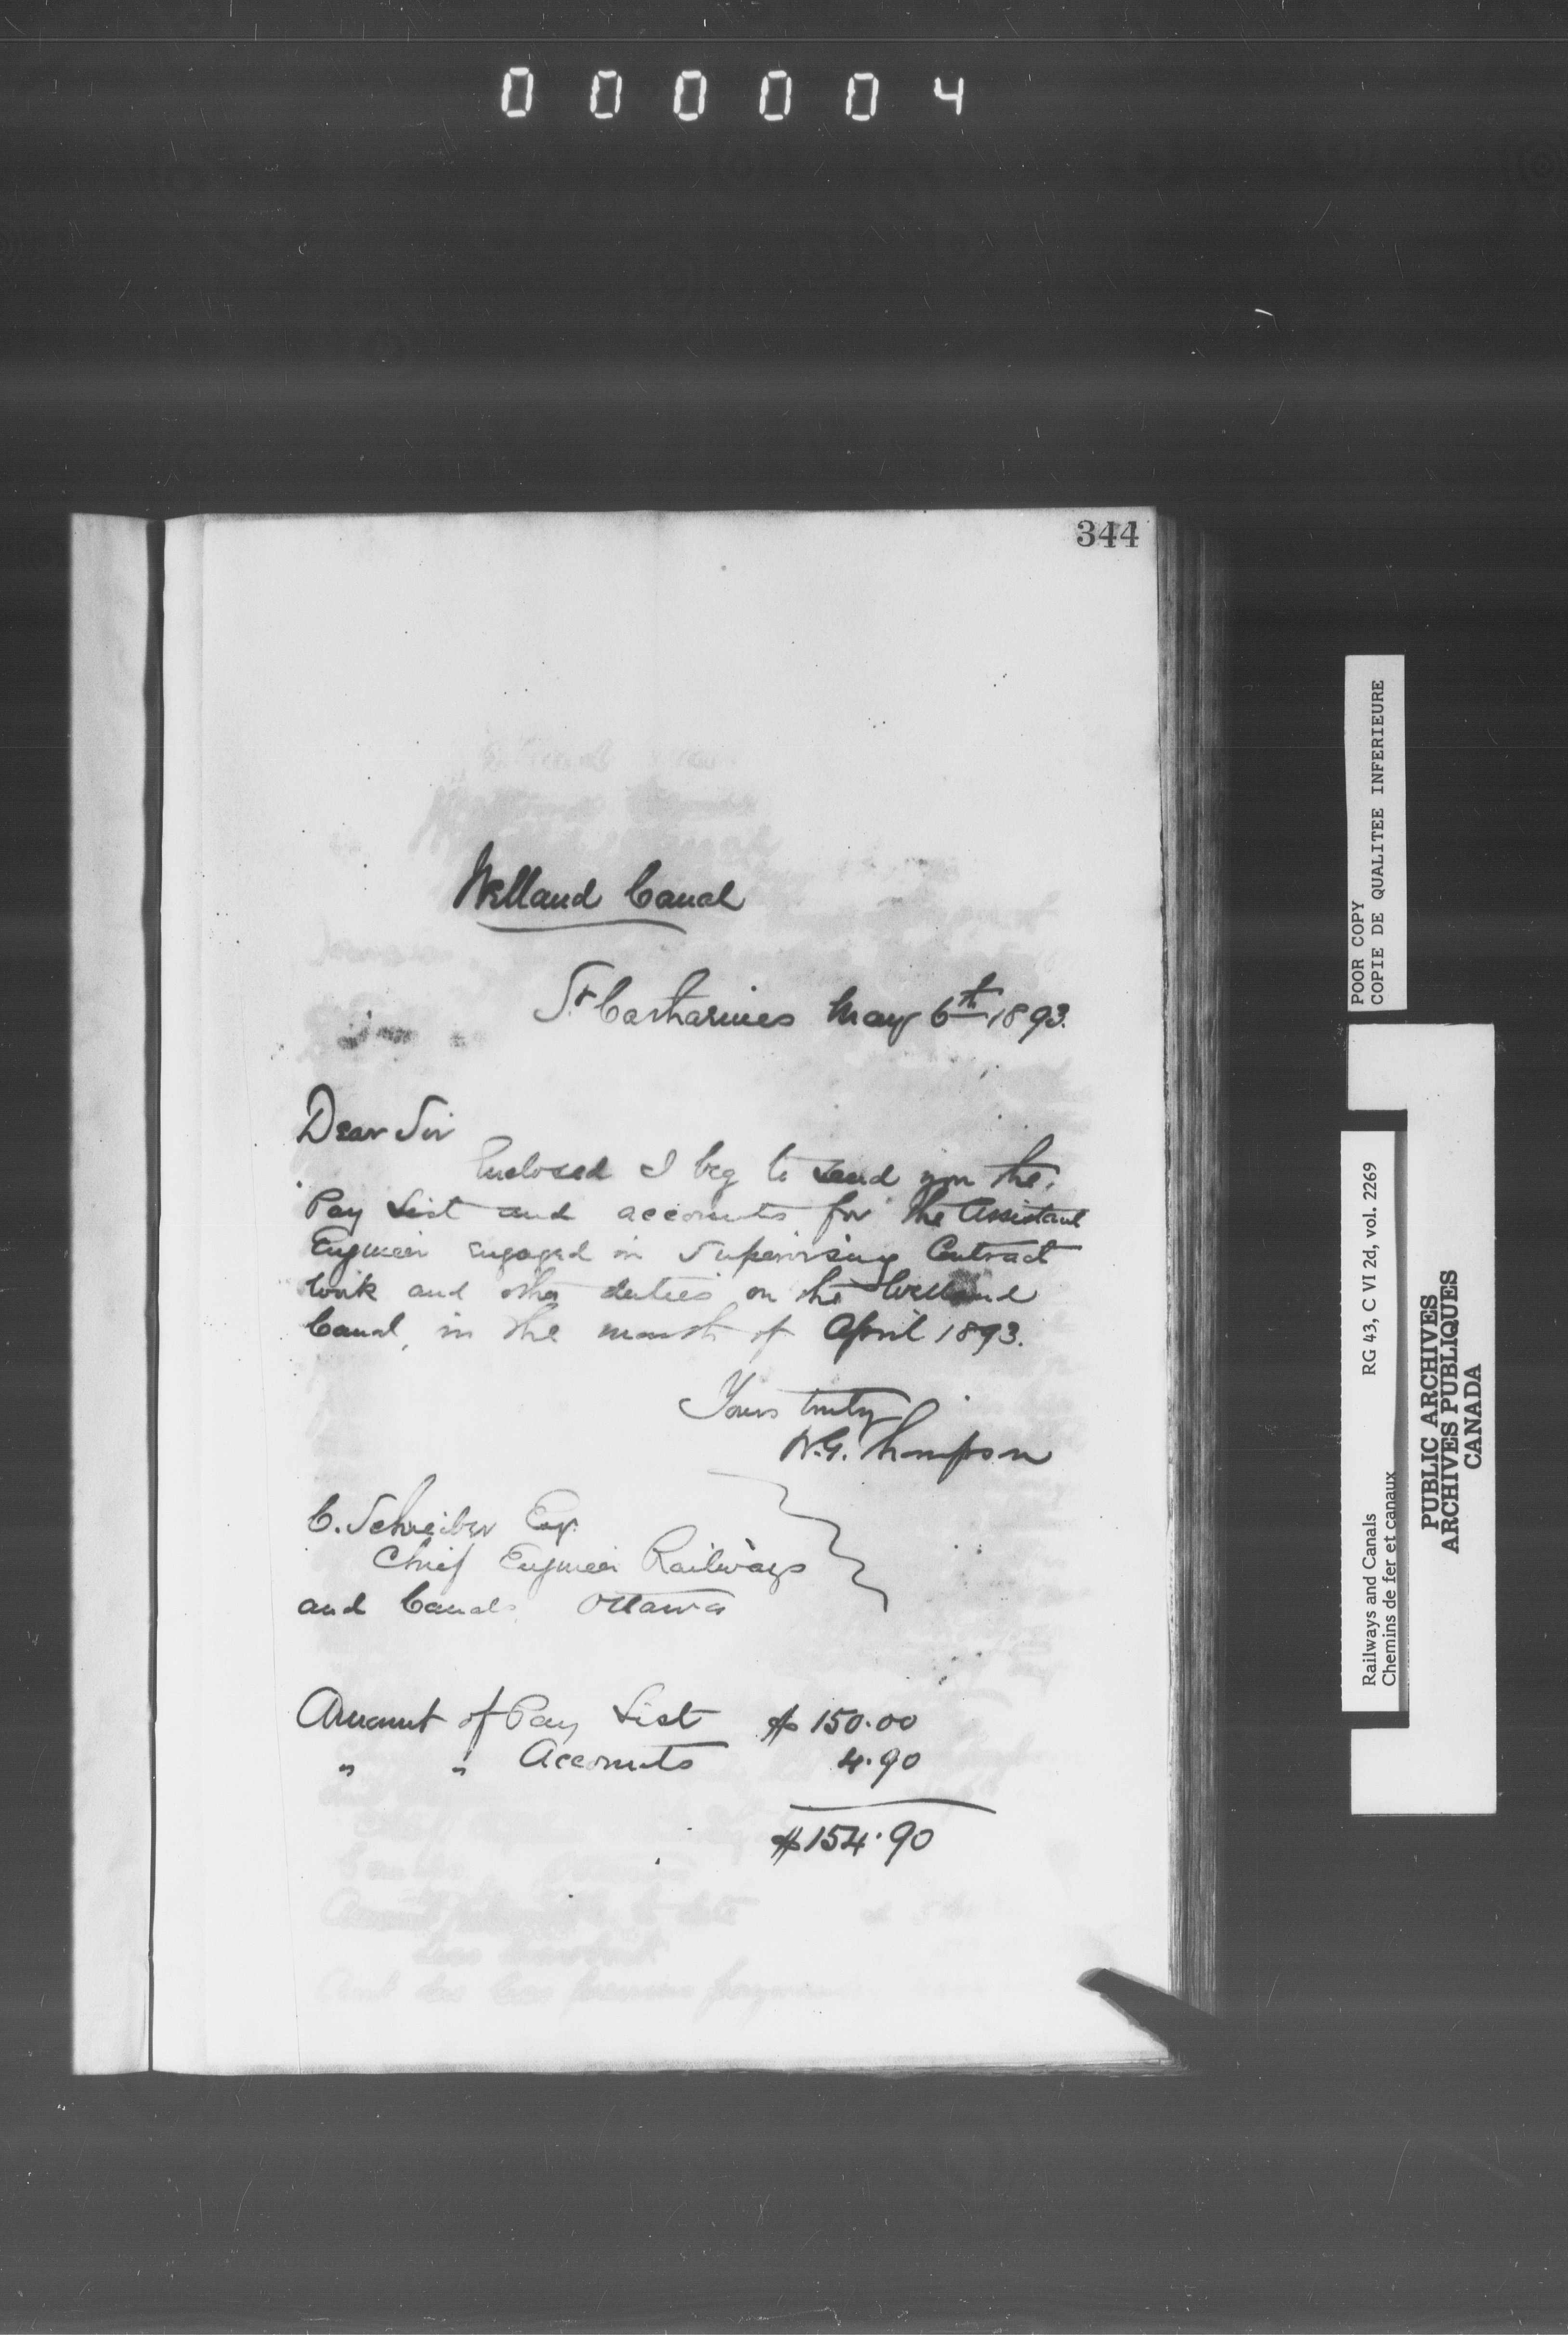 000004
344
Welland Canal
St Catharines May 6th 1893.
Dear Sir
Enclosed I beg to send you the
Pay List and accounts for the Assistant
Engineer engaged in Supervising Contract
work and other duties on the Welland
Canal, in the month of April 1893.
Yours truly
W.G. Thompson
C. Schreiber Esq.
Chief Engineer Railways
and Canals Ottawa
Amount of Pay List $150.00
" " Accounts 4.90
$154.90
POOR COPY
COPIE DE QUALITEE INFERIEURE
Railways and Canals RG 43, C VI 2d, vol. 2269
Chemins de fer et canaux
PUBLIC ARCHIVES
ARCHIVES PUBLIQUES
CANADA